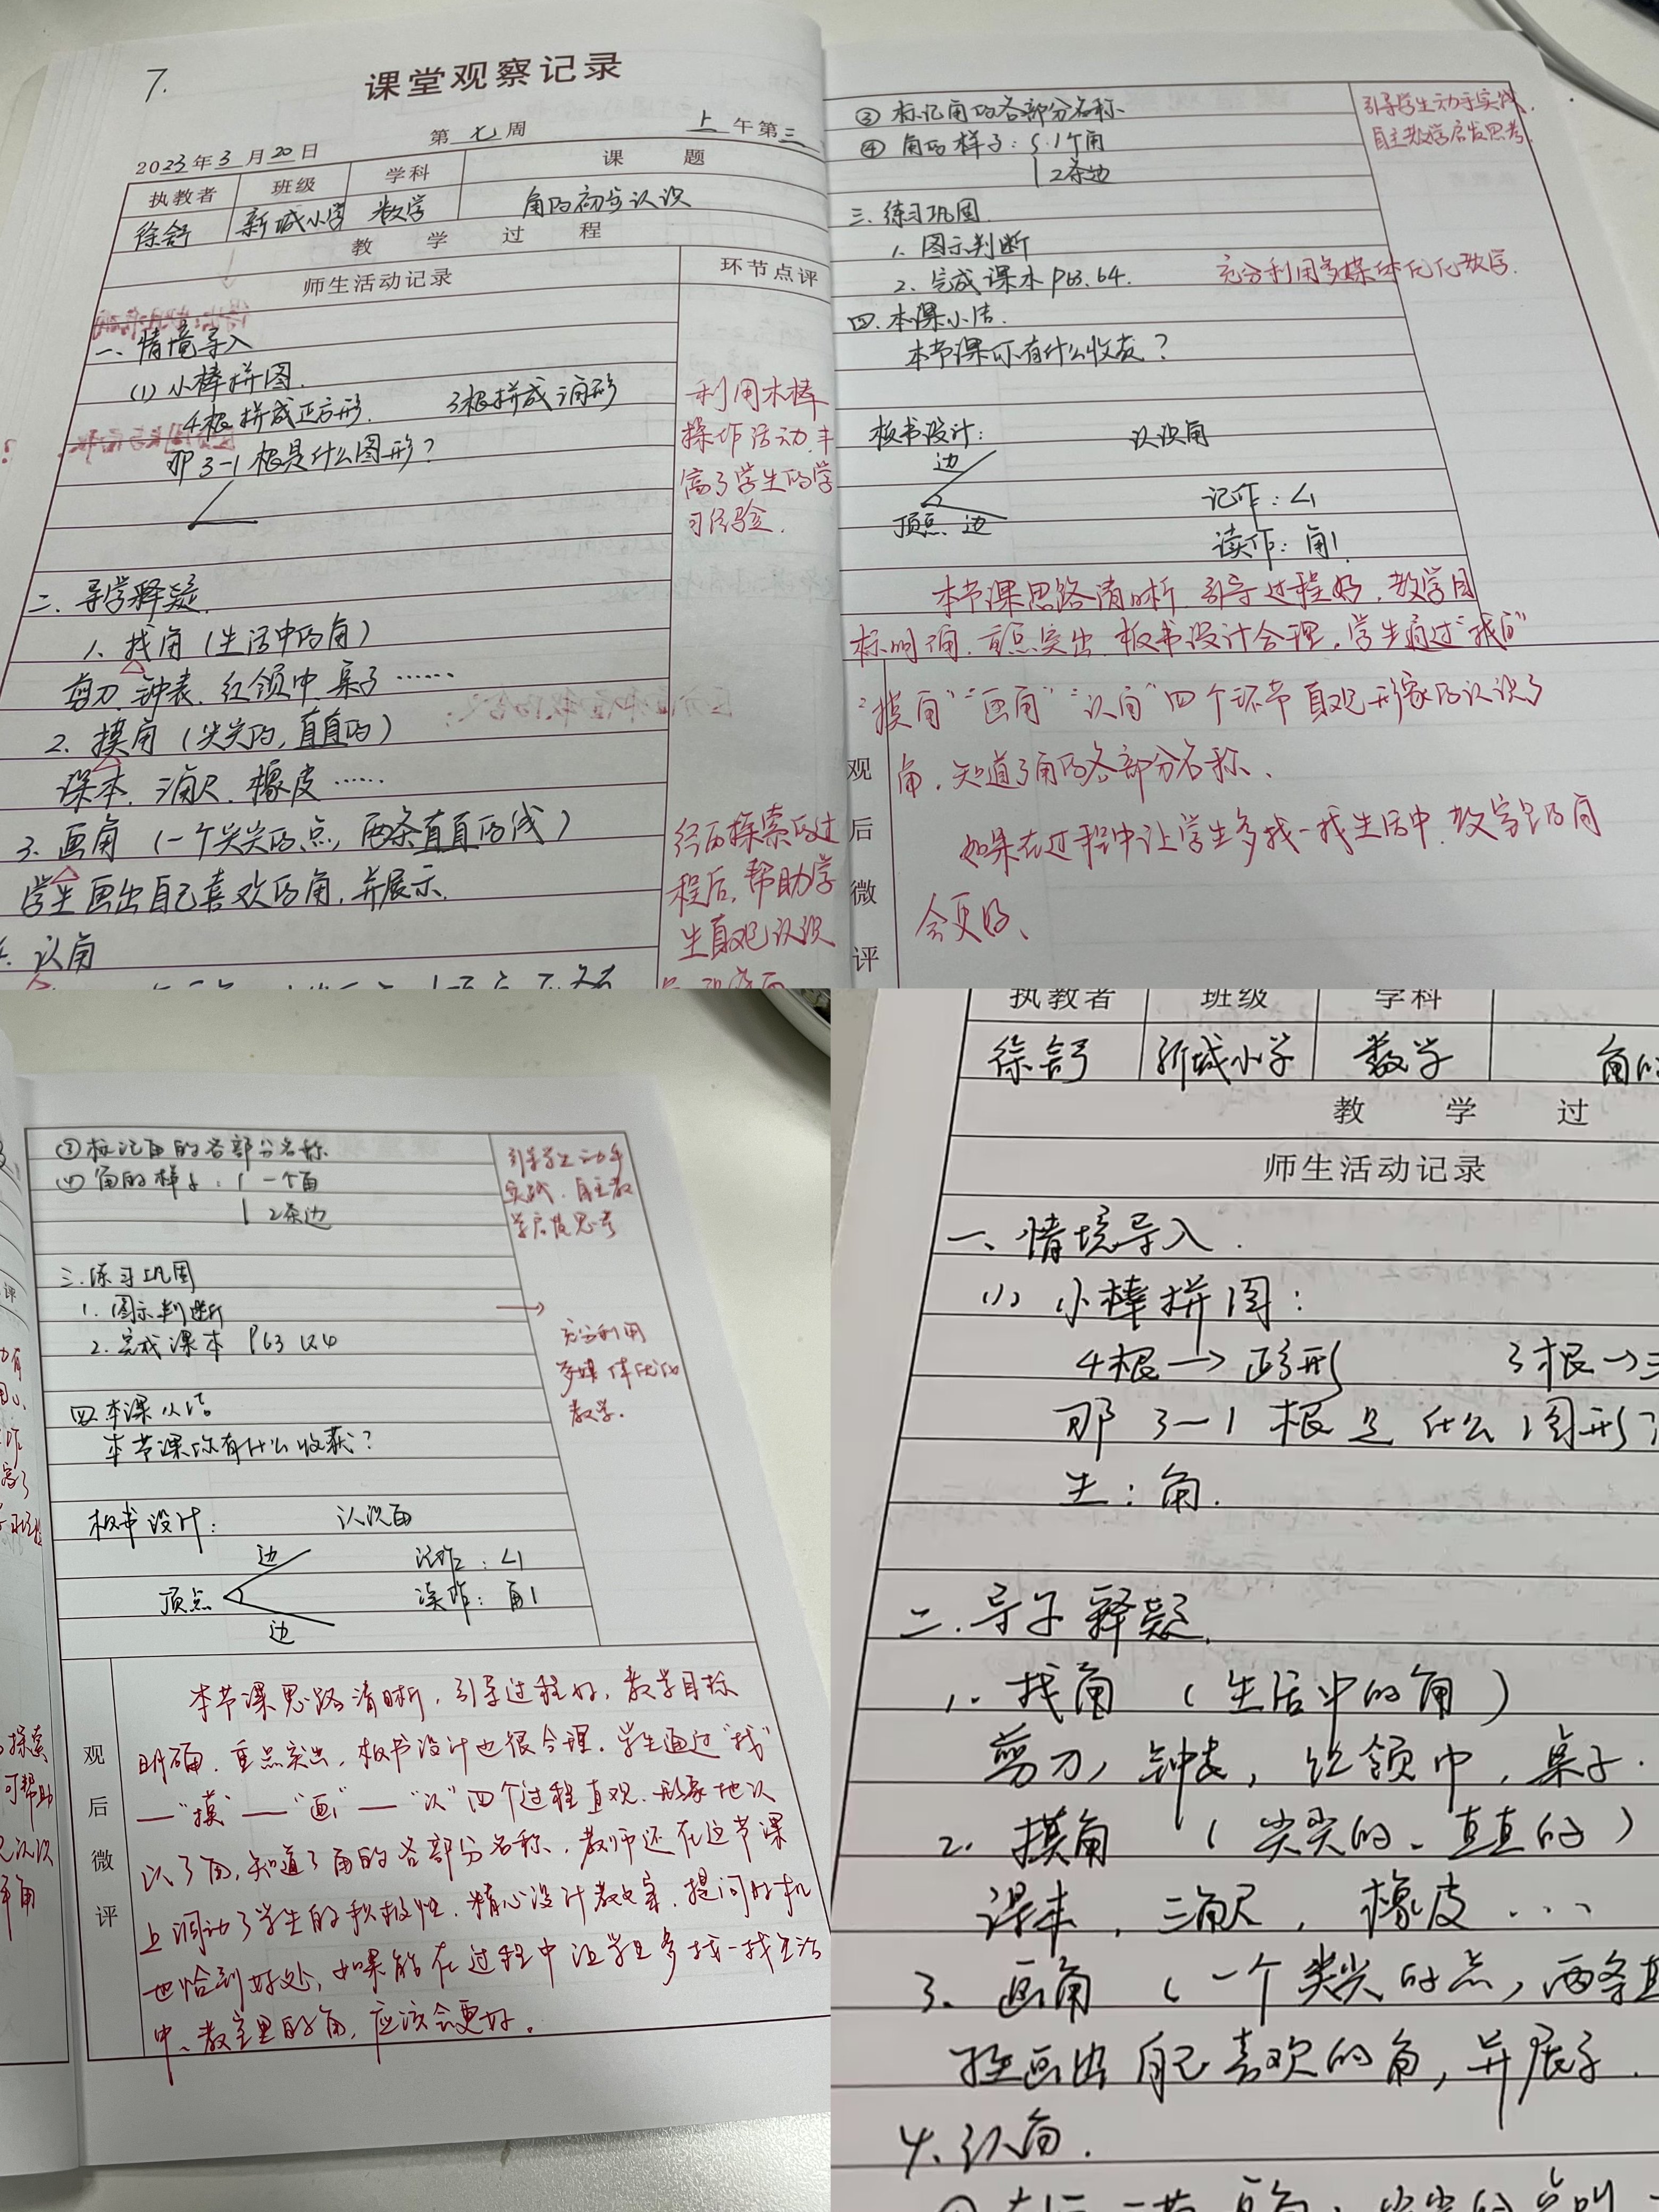 7.
课堂观察记录
2023年3月20日 第七周 上午第三
执教者 班级 学科 课题
徐舒 新城小学 数学 角的初步认识
教学过程
师生活动记录 环节点评
一、情境导入
(1) 小棒拼图.
4根拼成正方形. 3根拼成三角形
那3-1根是什么图形?
利用木棒
操作活动丰
富了学生的学
习经验.
二、导学释疑.
1、找角(生活中的角)
剪刀、钟表、红领巾、桌子……
2. 摸角(尖尖的,直直的)
课本、三角尺、橡皮……
3. 画角(一个尖尖的点,两条直直的线)
学生画出自己喜欢的角,并展示.
认角
经历探索的过
程后,帮助学
生直观认识
③ 标记角的各部分名称
④ 角的样子: 1个角
2条边
引导学生动手实践,
自主教学启发思考.
三. 练习巩固
1. 图示判断
2. 完成课本P63.64.
充分利用多媒体优化教学.
四. 本课小结.
本节课你有什么收获?
板书设计: 认识角
边
顶点 边
记作:∠1
读作:角1
本节课思路清晰.引导过程好.教学目
标明确.重点突出.板书设计合理.学生通过“找角”
“摸角”“画角”“认角”四个环节直观形象的认识了
角,知道了角的各部分名称、
如果在过程中让学生多找一找生活中、教室里的角
会更好、
观后微评
③ 标记角的各部分名称
(4) 角的样子: 一个角
2条边
引导学生动手
实践、自主教
学启发思考
三.练习巩固
1. 图示判断
2. 完成课本 P63 以4
充分利用
多媒体优化
教学.
四.本课小结
本节课你有什么收获?
板书设计: 认识角
边
顶点
边
记作:∠1
读作:角1
观后微评
本节课思路清晰,引导过程好,教学目标
明确.重点突出,板书设计也很合理.学生通过“找”
—“摸”—“画”—“认”四个过程直观、形象地认
识了角,知道了角的各部分名称.教师还在这节课
上调动了学生的积极性.精心设计教案.提问的时机
也恰到好处,如果能在过程中让学生多找一找生活
中、教室里的角,应该会更好。
执教者 班级 学科
徐舒 新城小学 数学
教学过
师生活动记录
一、情境导入.
(1) 小棒拼图:
4根→正方形 3根→三
那3-1根是什么图形?
生:角.
二.导学释疑.
1. 找角(生活中的角)
剪刀,钟表,红领巾,桌子.
2. 摸角(尖尖的、直直的)
课本,三角尺,橡皮...
3. 画角(一个尖尖的点,两条直
画出自己喜欢的角,并展示.
4. 认角.